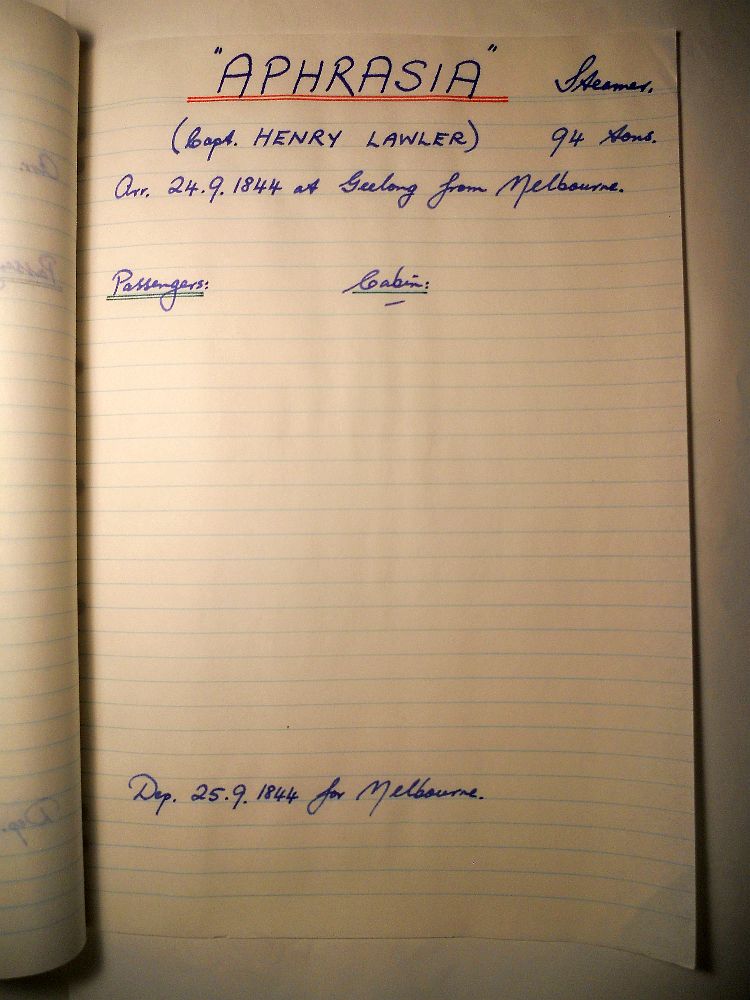 "APHRASIA" Steamer.
(Capt. HENRY LAWLER) 94 tons.
Arr. 24.9.1844 at Geelong from Melbourne.
Passengers: Cabin:
—
Dep. 25.9.1844 for Melbourne.